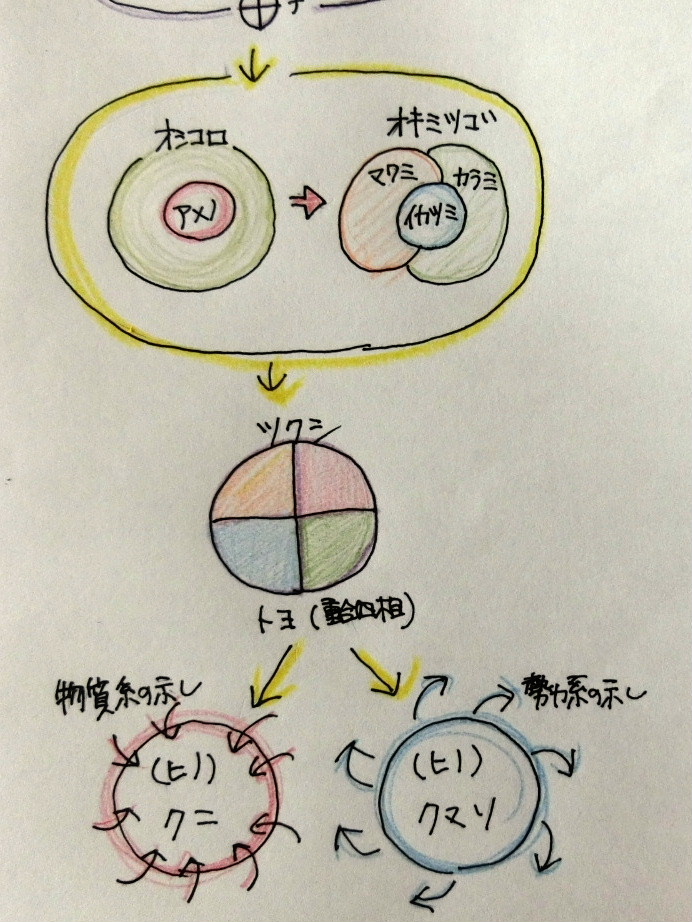 オシコロ
オキミツゴ
アメノ
マワミ
カラミ
イカツミ
ツクシ
トヨ(重合四相)
物質系の示し
勢力系の示し
(ヒノ)
クニ
(ヒノ)
クマソ